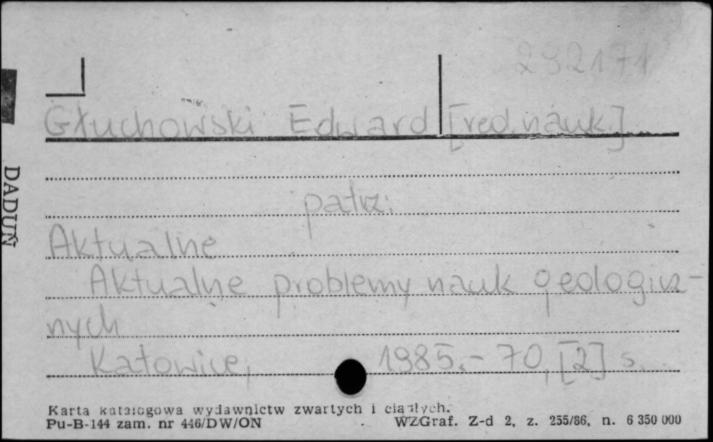 292171
Głuchowski Edward [red. nauk.]
patrz:
Aktualne
Aktualne problemy nauk geologicz-
nych
Katowice, 1985. - 70, [2] s.
DADUŃ
Karta katalogowa wydawnictw zwartych i ciągłych.
Pu-B-144 zam. nr 446/DW/ON WZGraf. Z-d 2, z. 255/86, n. 6 350 000